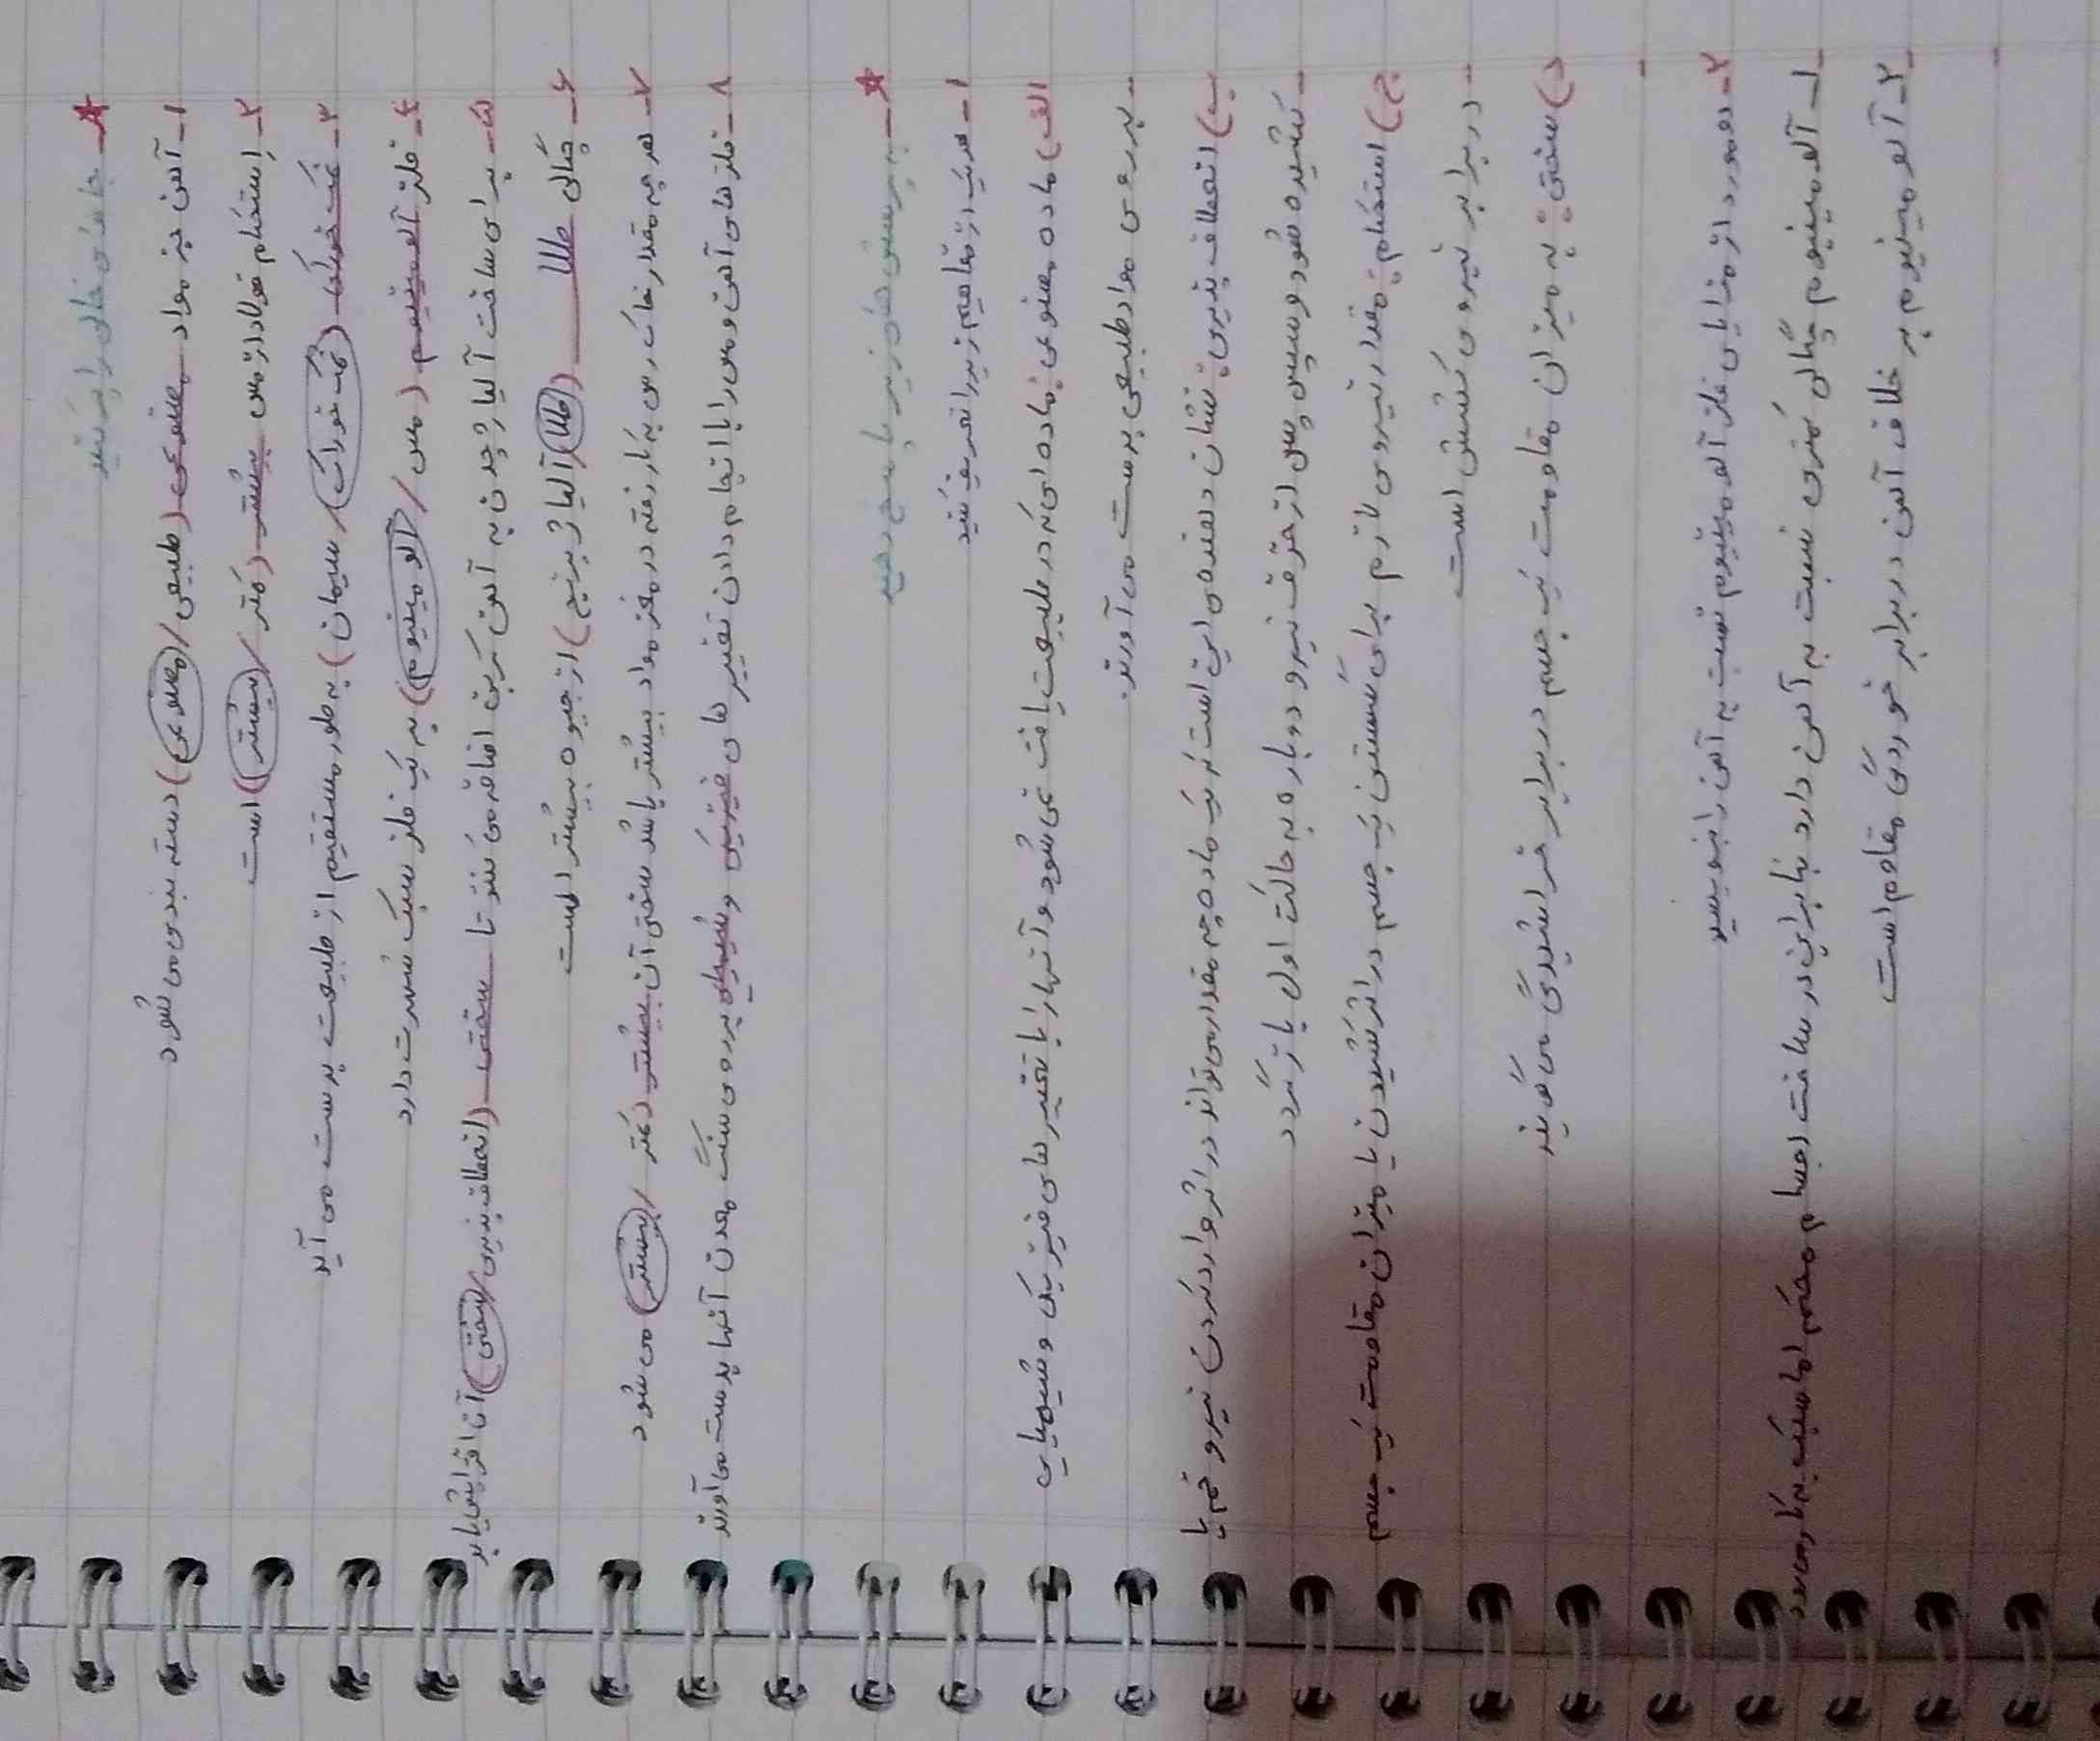 ★ـ جاهای خالی را پر کنید
۱ـ آهن جز مواد مصنوعی (طبیعی / مصنوعی) دسته بندی می شود
۲ـ استحکام فولاد از مس بیشتر (کمتر / بیشتر) است
۳ـ نمک خوراکی (نمک خوراک / سیمان) به طور مستقیم از طبیعت بدست می آید
۴ـ فلز آلومینیوم (مس / آلومینیوم) به یک فلز سبک شهرت دارد
۵ـ برای ساخت آلیاژ چدن به آهن کربن اضافه می کنند تا سختی (انعطاف پذیری / سختی) آن افزایش یابد
۶ـ چگالی طلا (طلا / آلیاژ برنج) از جیوه بیشتر است
۷ـ هر چه مقدار خاک رس به کار رفته در مغز مداد بیشتر باشد سختی آن بیشتر (کمتر / بیشتر) می شود
۸ـ فلزهای آهن و مس را با انجام دادن تغییر های فیزیکی و شیمیایی بر روی سنگ معدن آنها بدست می آورند
★ـ به پرسش های زیر پاسخ دهید
۱ـ هریک از مفاهیم زیر را تعریف کنید
الف) ماده مصنوعی: ماده ای که در طبیعت یافت نمی شود و آنها را با تغییر های فیزیکی و شیمیایی
ـ بر روی مواد طبیعی بدست می آورند.
ب) انعطاف پذیری: نشان دهنده ی این است که یک ماده چه مقدار می تواند در اثر وارد کردن نیرو خم یا
ـ کشیده شود و سپس پس از حذف نیرو دوباره به حالت اول باز گردد
ج) استحکام: مقدار نیروی لازم برای گسستن یک جسم در اثر کشیدن یا میزان مقاومت یک جسم
ـ در برابر نیروی کشش است
د) سختی: به میزان مقاومت یک جسم در برابر خراشیدگی می گویند
۲ـ دو مورد از مزایای فلز آلومینیوم نسبت به آهن را بنویسید
ـ۱ـ آلومینیوم چگالی کمتری نسبت به آهن دارد بنابراین در ساخت اجسام محکم اما سبک به کار می رود
ـ۲ـ آلومینیوم بر خلاف آهن در برابر خوردگی مقاوم است